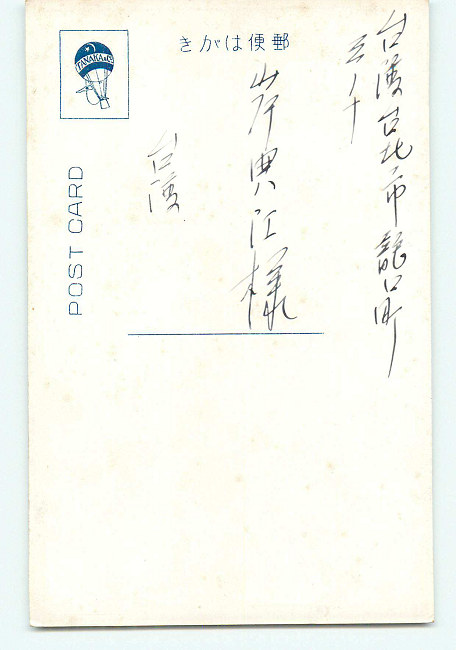 きがは便郵
TANAKA & Co
POST CARD
台湾台北市龍口町
三ノ十
岸興江様
台湾